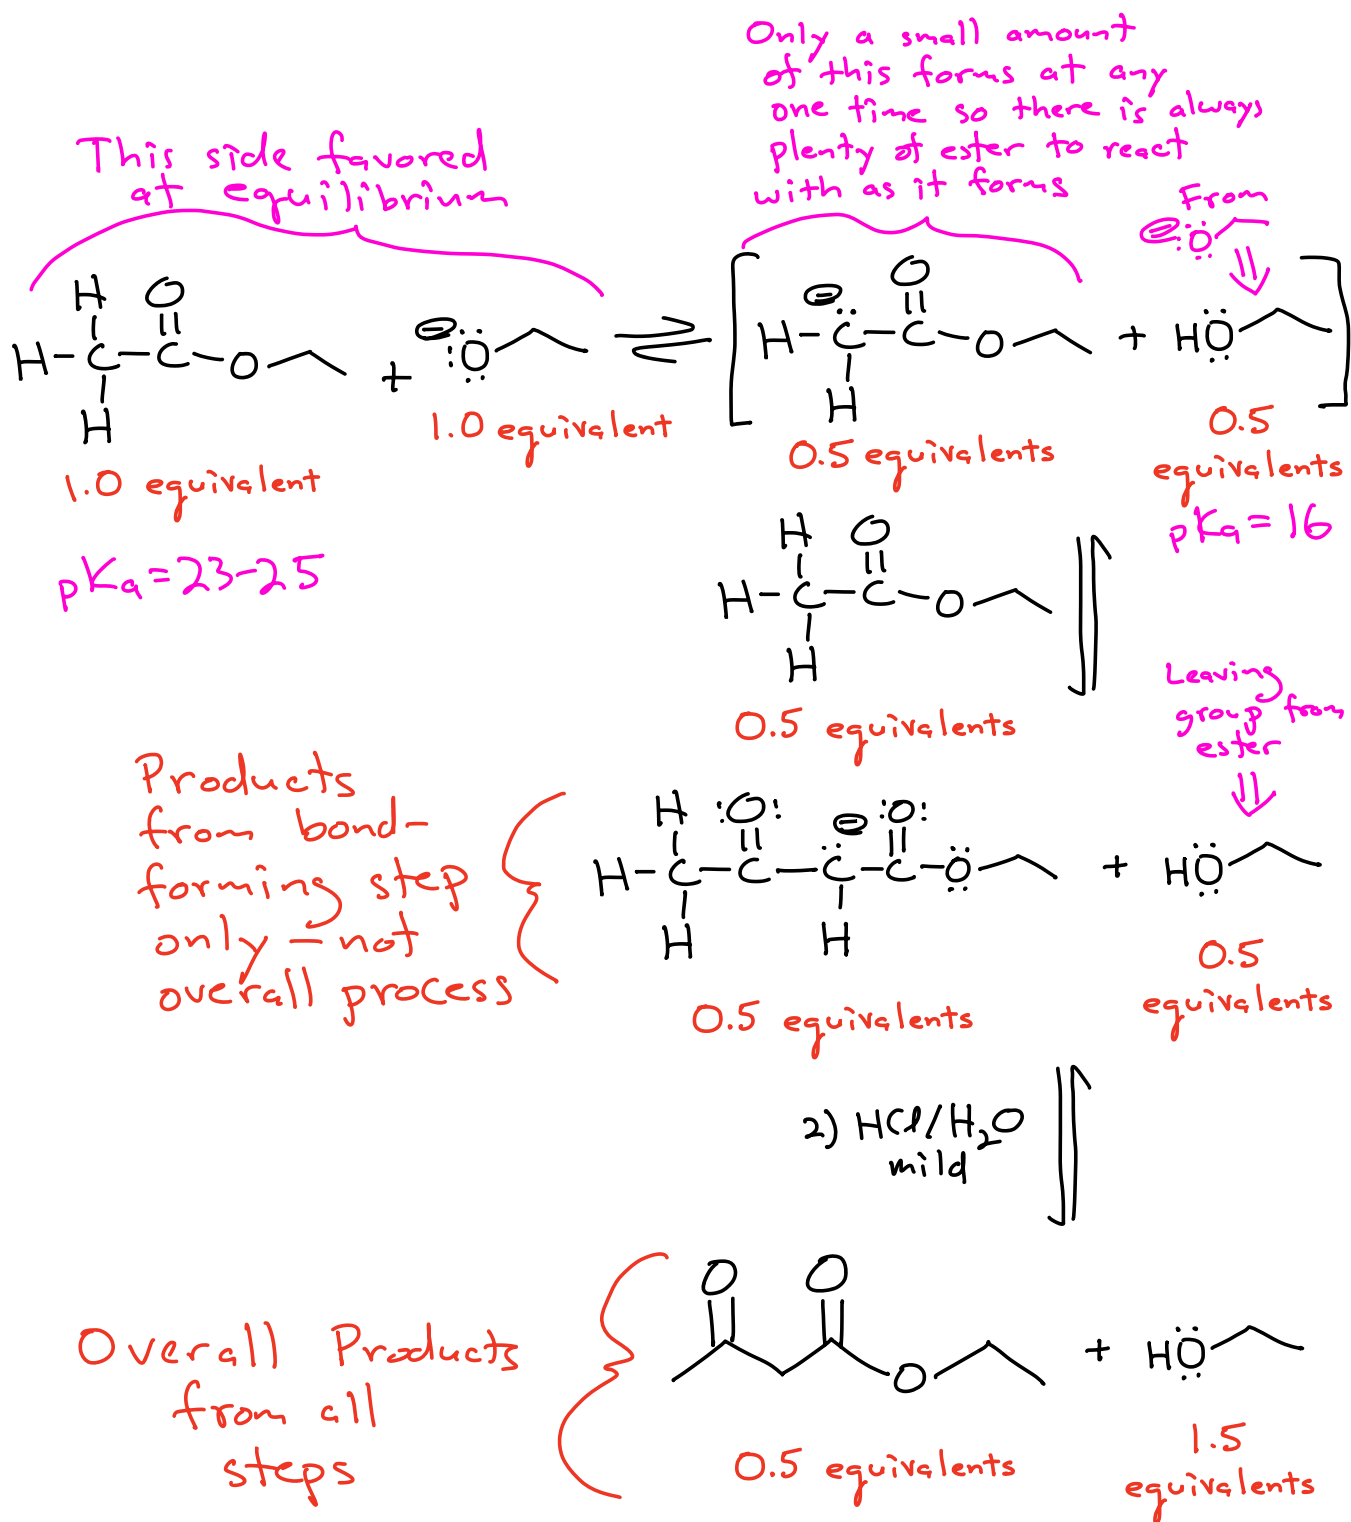 Only a small amount
of this forms at any
one time so there is always
plenty of ester to react
with as it forms
This side favored
at equilibrium
From
⊖:Ö
H O
H-C-C-O
H
+
⊖:Ö
⇌
[
⊖ O
H-C-C-O
H
+
HÖ
]
1.0 equivalent
1.0 equivalent
0.5 equivalents
0.5
equivalents
pKa=23-25
pKa=16
H O
H-C-C-O
H
0.5 equivalents
Leaving
group from
ester
Products
from bond-
forming step
only – not
overall process
H :O: ⊖ :O:
H-C-C-C-C-Ö
H H
+
HÖ
0.5 equivalents
0.5
equivalents
2) HCl/H₂O
mild
Overall Products
from all
steps
O O
O
+
HÖ
0.5 equivalents
1.5
equivalents